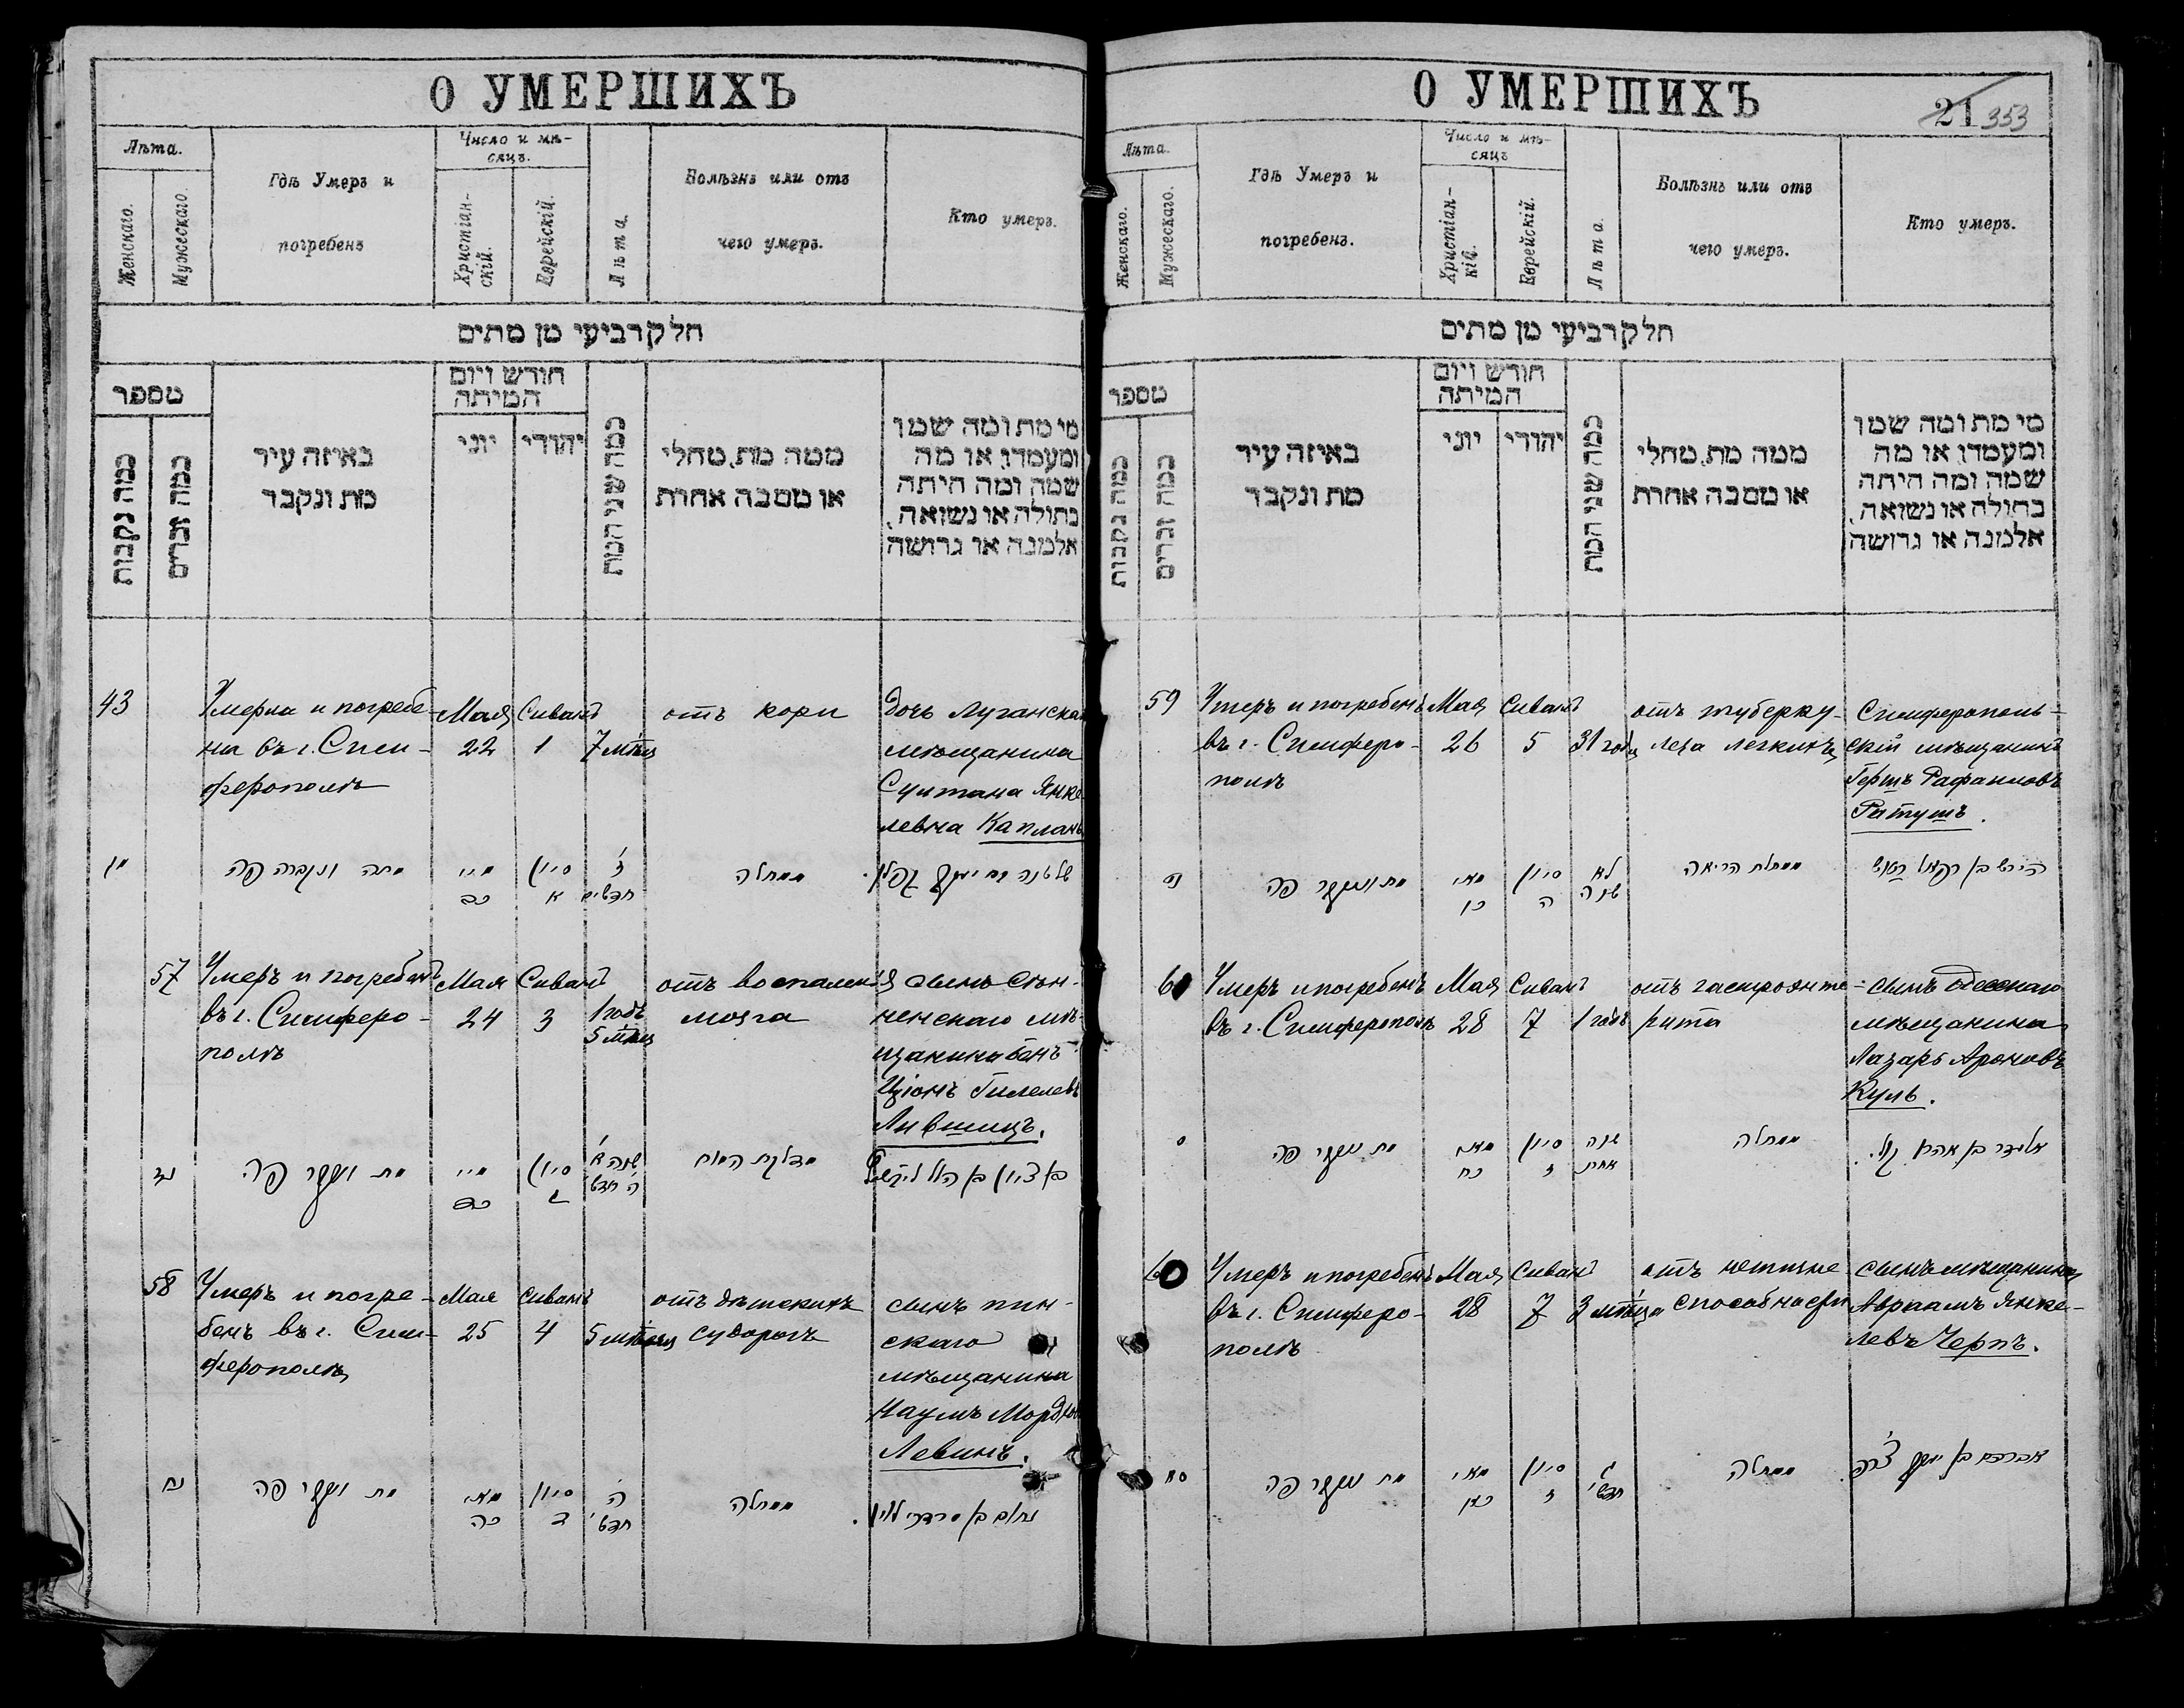 О УМЕРШИХЪ
Лѣта.
Женскаго.
Мужескаго.
Гдѣ Умеръ и
погребенъ
Число и мѣ-
сяцъ.
Христіан-
скій.
Еврейскій.
Лѣта.
Болѣзнь или отъ
чего умеръ.
Кто умеръ.
חלק רביעי מן מתים
מספר
כמה נקבות
כמה זכרים
באיזה עיר
מת ונקבר
חודש ויום
המיתה
יוני
יהודי
כמה שני המת
ממה מת, מחלי
או מסבה אחרת
מי מת ומה שמו
ומעמדו, או מה
שמה ומה היתה
בתולה או נשואה,
אלמנה או גרושה
43
Умерла и погребе-
на въ г. Сим-
ферополѣ
Мая
22
Сиванъ
1
7 мѣсяц
отъ кори
Дочь Луганскаго
мѣщанина
Султана Янке
левна Капланъ
מתה ונקברה פה
מיי
כב
סיון
א
ז'
חדשים
ממחלה
57
Умеръ и погребенъ
въ г. Симферо-
полѣ
Мая
24
Сиванъ
3
1 годъ
5 мѣсяц
отъ воспаленія
мозга
сынъ
мѣ-
щанина Бенъ
Ціонъ Гилелевъ
Лившицъ.
נז
מת ונקבר פה
מיי
סיון
ג
שנה א'
ה' חדשי'
מדלקת המוח
בן ציון בן הלל ליפשיץ
58
Умеръ и погре-
бенъ въ г. Сим-
ферополѣ
Мая
25
Сиванъ
4
5 мѣсяц
отъ дѣтскихъ
судорогъ
сынъ пин-
скаго
мѣщанина
Наумъ Мордков
Левинъ.
נח
מת ונקבר פה
מאי
כה
סיון
ד
ה'
חדשי'
ממחלה
נחום בן מרדכי לוין.
О УМЕРШИХЪ
21 353
Лѣта.
Женскаго.
Мужескаго.
Гдѣ Умеръ и
погребенъ.
Число и мѣ-
сяцъ
Христіан-
кій.
Еврейскій.
Лѣта.
Болѣзнь или отъ
чего умеръ.
Кто умеръ.
חלק רביעי מן מתים
מספר
כמה נקבות
כמה זכרים
באיזה עיר
מת ונקבר
חודש ויום
המיתה
יוני
יהודי
כמה שני המת
ממה מת, מחלי
או מסבה אחרת
מי מת ומה שמו
ומעמדו, או מה
שמה ומה היתה
בתולה או נשואה,
אלמנה או גרושה
59
Умеръ и погребенъ
въ г. Симферо-
полѣ
Мая
26
Сиванъ
5
31 годъ
отъ туберку-
леза легкихъ
Симферополь-
скій мѣщанинъ
Гершъ Рафаиловъ
Ратушъ.
נט
מת ונקבר פה
מאי
כו
סיון
ה
לא
שנה
ממחלת הריאה
הירש בן רפאל ראטוש
60
Умеръ и погребенъ
въ г. Симферополѣ
Мая
28
Сиванъ
7
1 годъ
отъ гастроэнте-
рита
сынъ Одесскаго
мѣщанина
Лазарь Ароновъ
Куль.
ס
מת ונקבר פה
מאי
כח
סיון
ז
שנה
אחת
ממחלה
אליעזר בן אהרן קול.
Умеръ и погребенъ
въ г. Симферо-
полѣ
Мая
28
Сиванъ
7
3 мѣсяца
отъ нежизне
способности
сынъ мѣщанина
Авраамъ Янке-
левъ Черпъ.
סא
מת ונקבר פה
מאי
סיון
ז
ג
חדשי'
ממחלה
אברהם בן יעקב